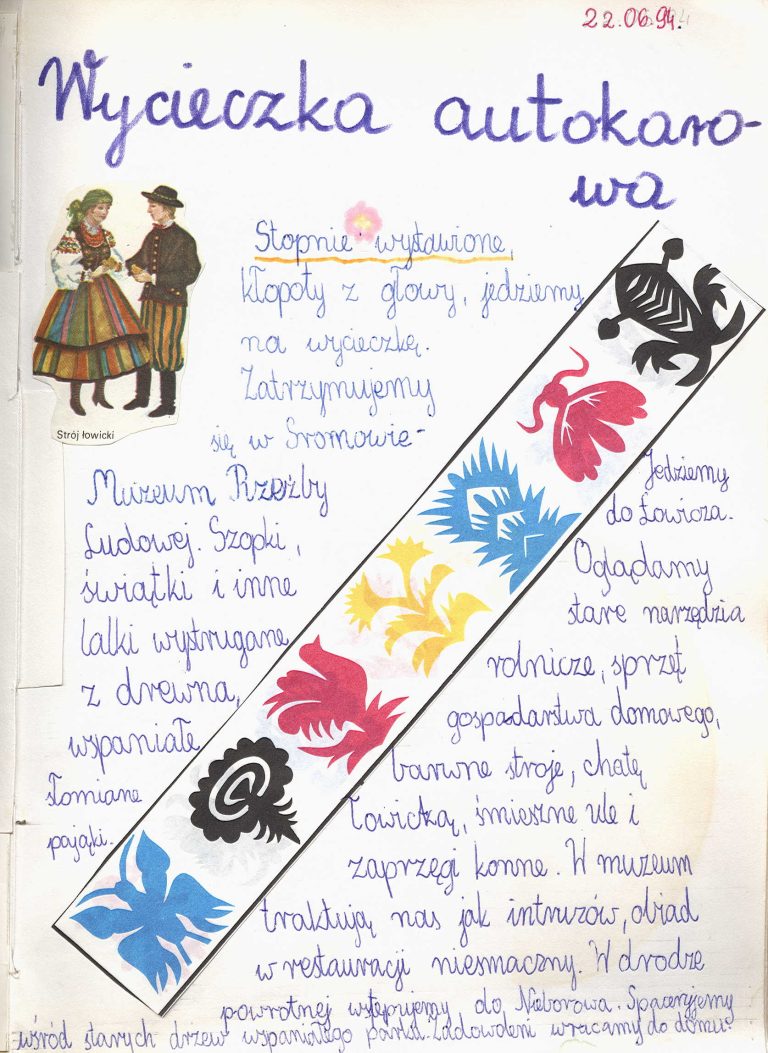 22.06.94.
Wycieczka autokaro-
wa
Strój łowicki
Stopnie wystawione,
kłopoty z głowy, jedziemy
na wycieczkę.
Zatrzymujemy
się w Sromowie -
Muzeum Rzeźby
Ludowej. Szopki,
świątki i inne
lalki wystrugane
z drewna,
wspaniałe
słomiane
pająki.
Jedziemy
do Łowicza.
Oglądamy
stare narzędzia
rolnicze, sprzęt
gospodarstwa domowego,
barwne stroje, chatę
łowicką, śmieszne ule i
zaprzęgi konne. W muzeum
traktują nas jak intruzów, obiad
w restauracji niesmaczny. W drodze
powrotnej wstępujemy do Nieborowa. Spacerujemy
wśród starych drzew wspaniałego parku. Zadowoleni wracamy do domu.